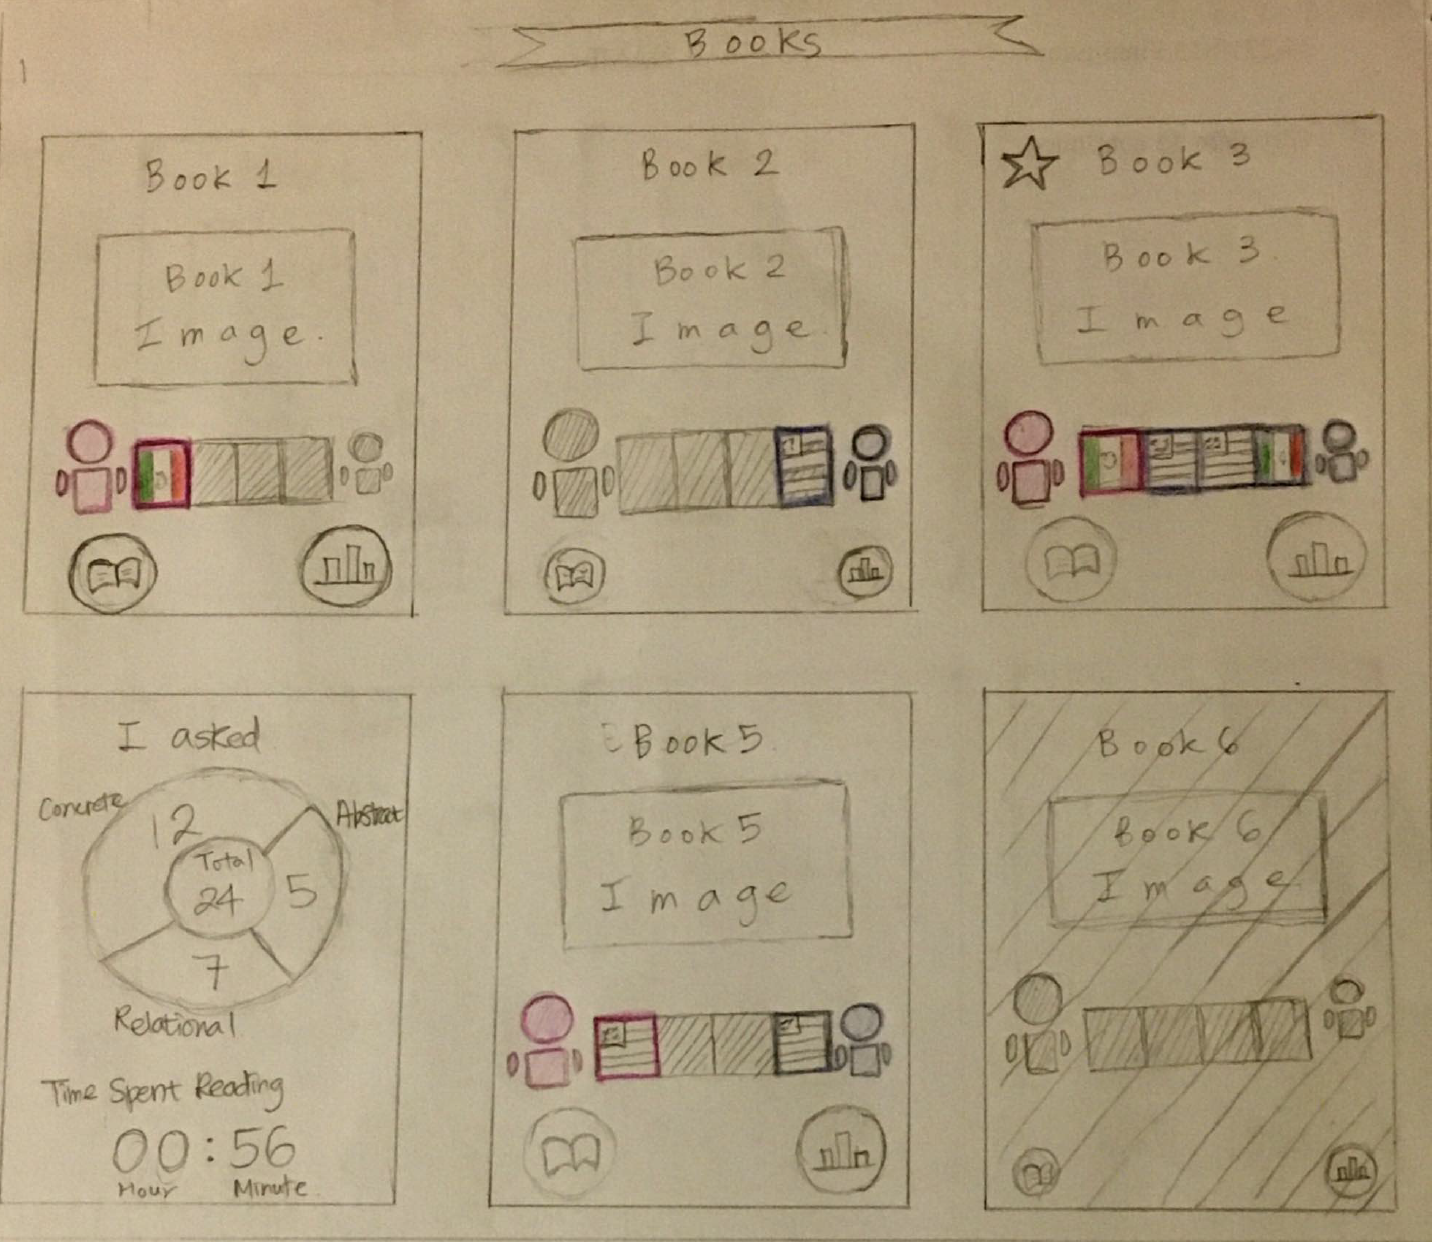 Books
Book 1
Book 1
Image.
Book 2
Book 2
Image.
Book 3
Book 3.
Image
I asked
Concrete
12
Abstract
Total
24
5
7
Relational
Time Spent Reading
00:56
Hour Minute
Book 5
Book 5
Image
Book 6
Book 6
Image